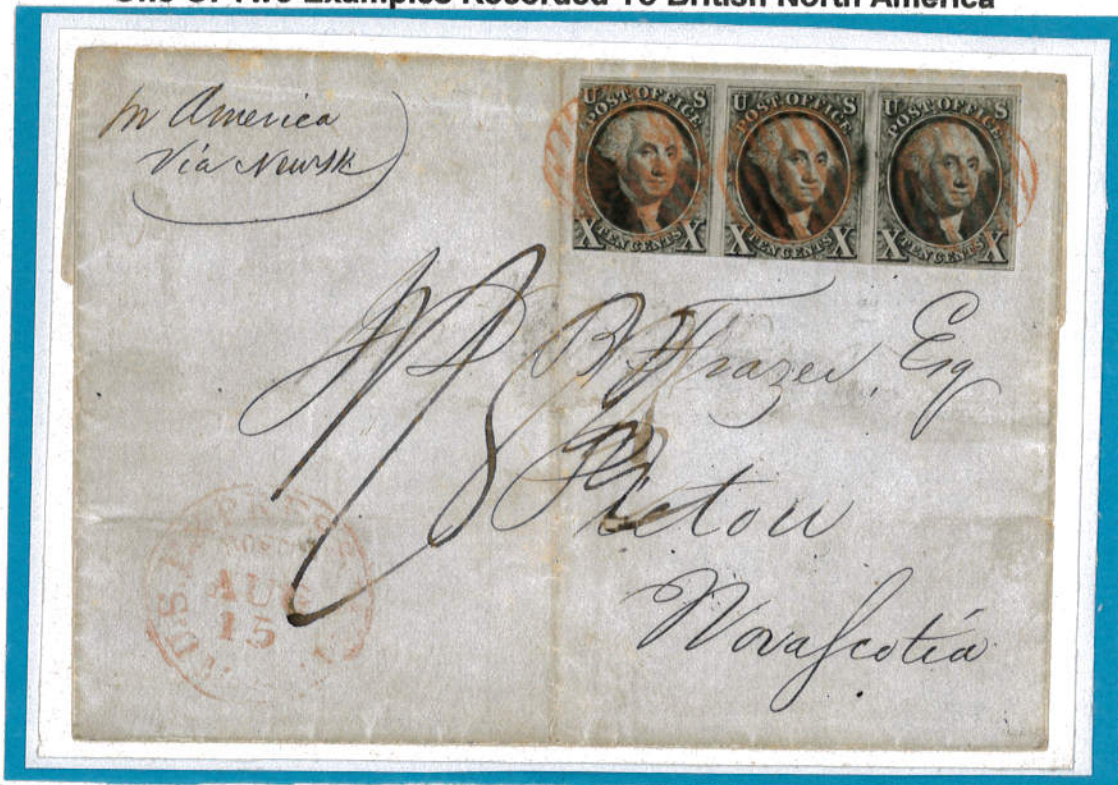 One Of Two Examples Recorded To British North America
pr America
Via Newyk
U S
POST OFFICE
X TEN CENTS X
U S
POST OFFICE
X TEN CENTS X
U S
POST OFFICE
X TEN CENTS X
B Frazer, Esq
Pictou
Nova Scotia
U.S. EXPRESS MAIL
AUG
15